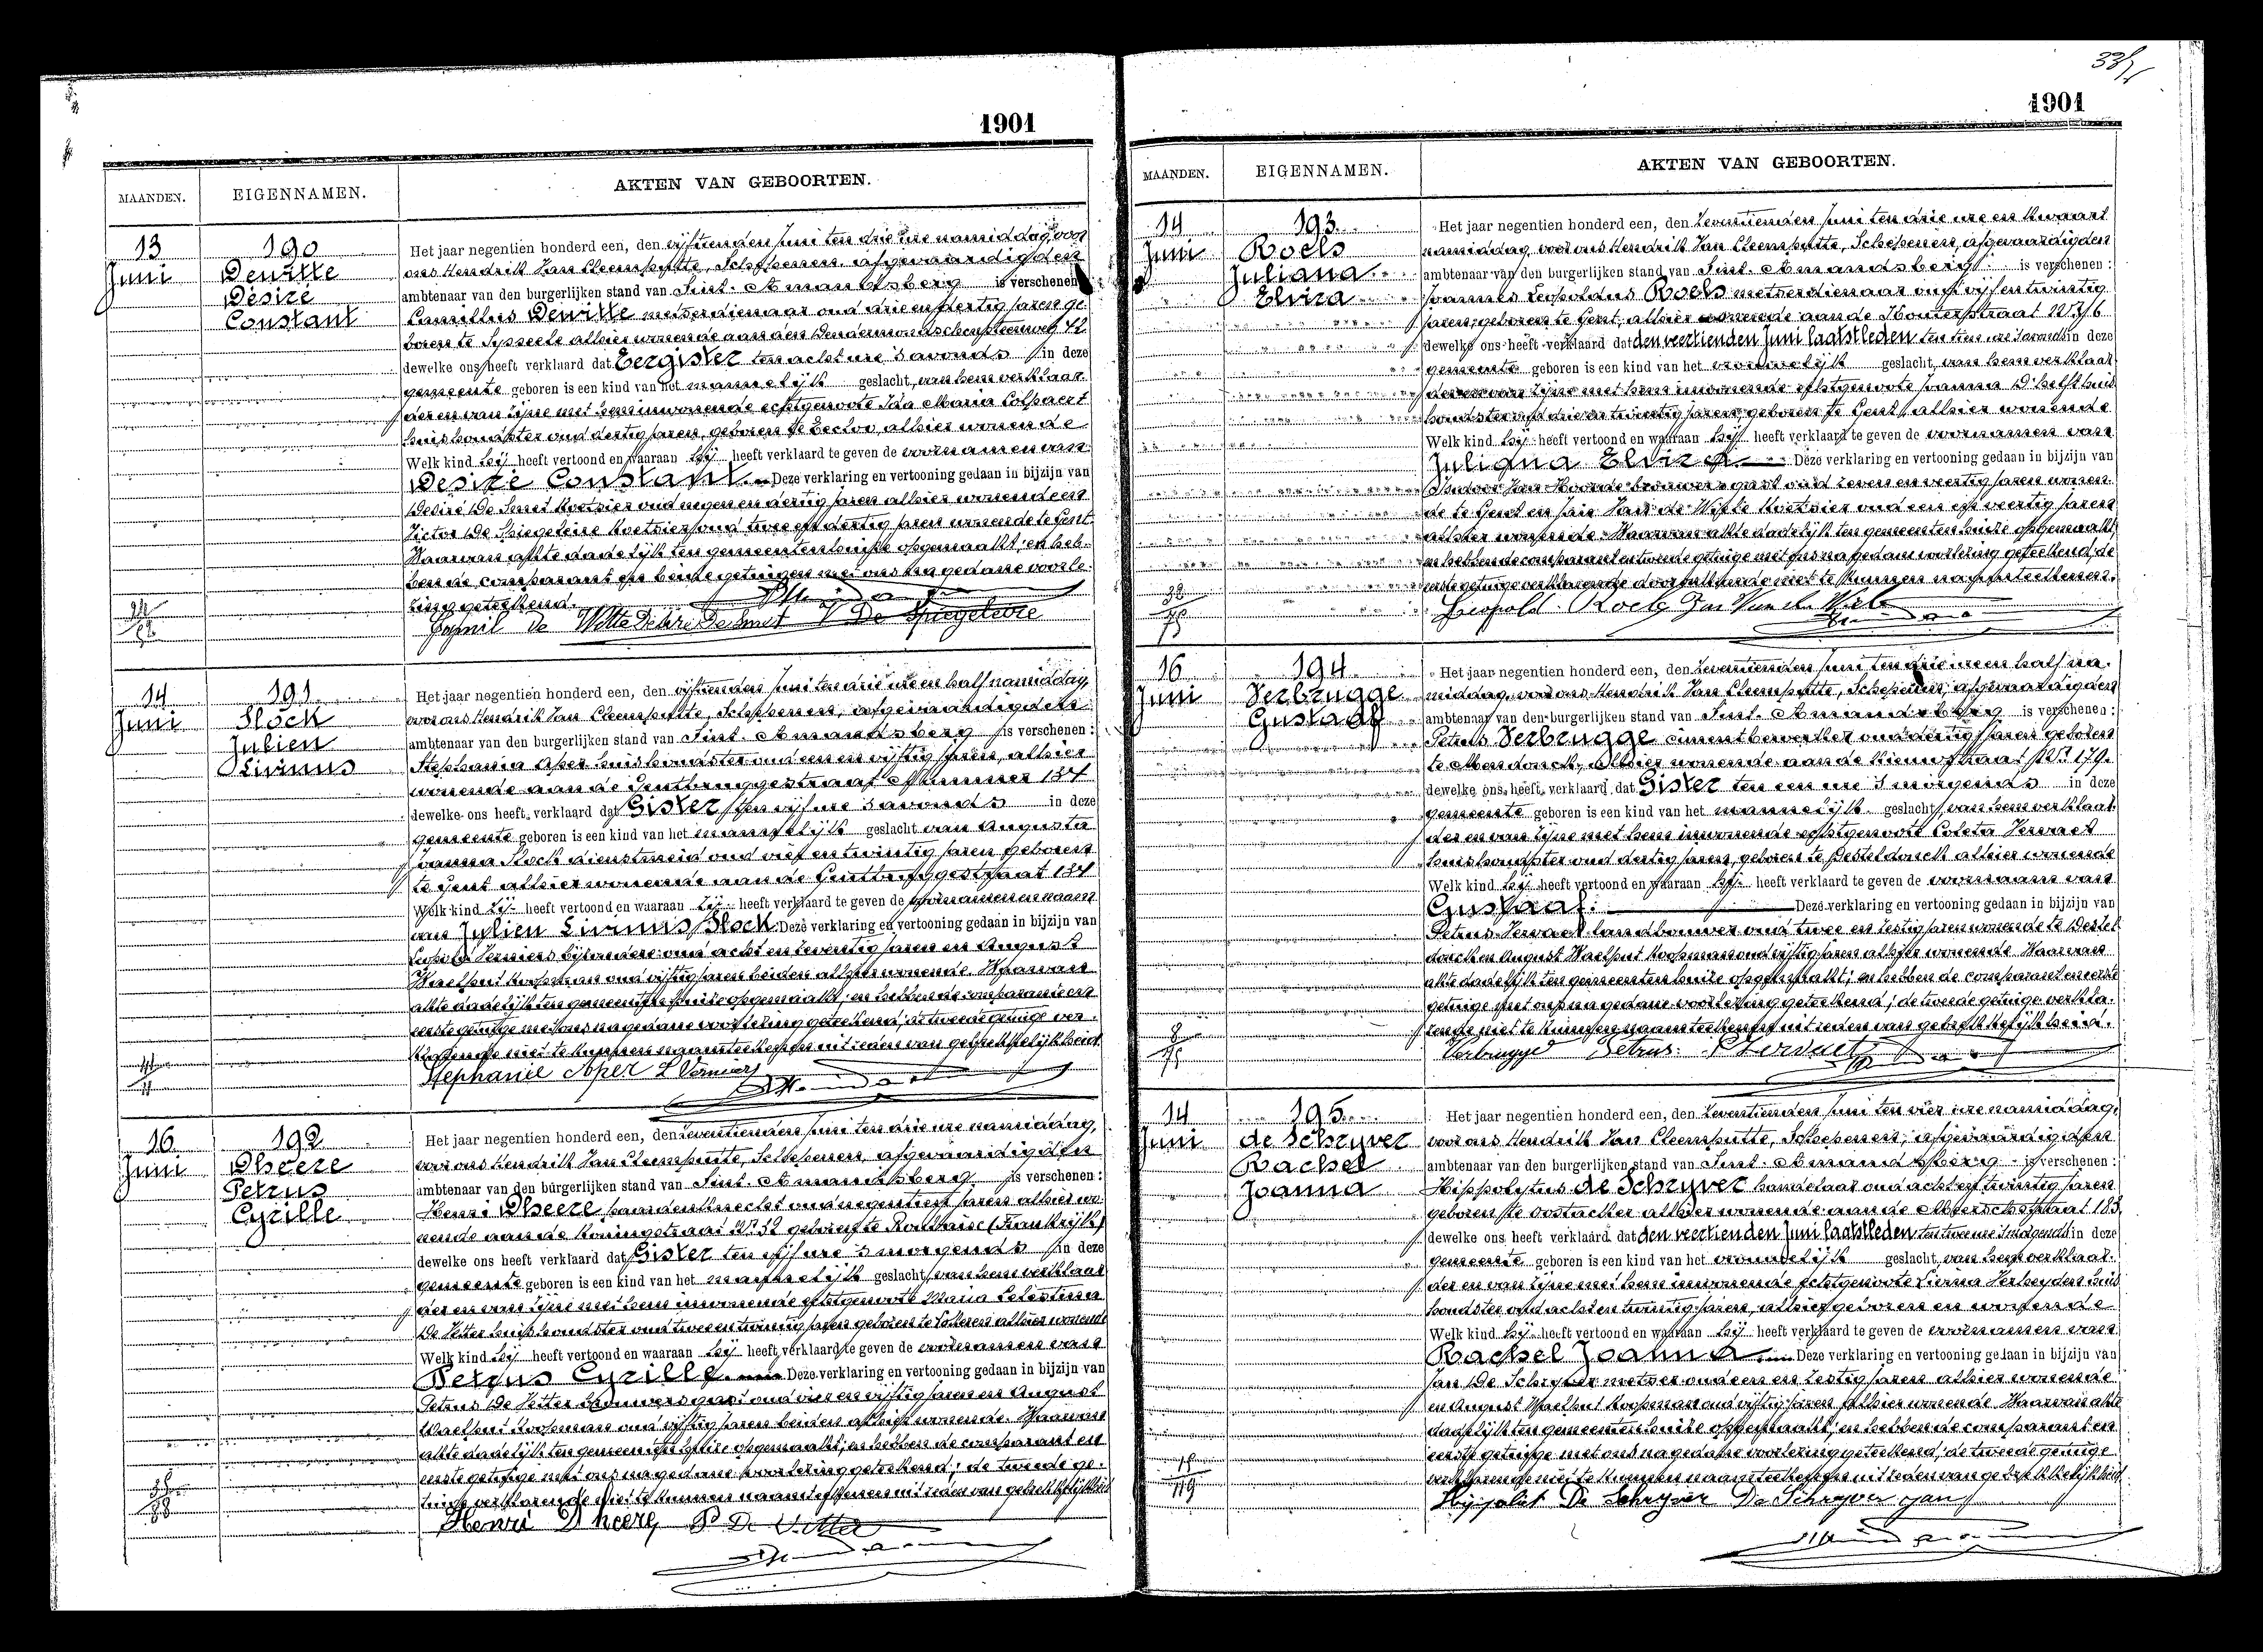 1901
MAANDEN. EIGENNAMEN. AKTEN VAN GEBOORTEN.
13 Juni
190
Dewitte
Désiré
Constant
Het jaar negentien honderd een, den vijftienden Juni ten drie ure namiddag, voor
ons Hendrik Van Cleemputte, Schepenen, afgevaardigden
ambtenaar van den burgerlijken stand van Sint-Amandsberg is verschenen
Camillus Dewitte metserdienaar oud drie en dertig jaren ge-
boren te Sysseele alhier wonende aan den Dendermondschensteenweg 42
dewelke ons heeft verklaard dat Eergister ten acht ure 's avonds in deze
gemeente geboren is een kind van het mannelijk geslacht, van hem verklaar-
der en van zijne met hem inwonende echtgenoote Ida Maria Colpaert
huishoudster oud dertig jaren, geboren te Eecloo, alhier wonende
Welk kind hij heeft vertoond en waaraan hij heeft verklaard te geven de voornamen van
Désiré Constant. Deze verklaring en vertooning gedaan in bijzijn van
Désiré De Smet Koetsier oud negen en dertig jaren alhier wonende en
Victor De Spiegeleire Koetsier oud twee en dertig jaren wonende te Gent.
Waarvan akte dadelijk ten gemeentenhuize opgemaakt; en heb-
ben de comparant en beide getuigen met ons na gedane voorle-
zing geteekend.
Camil de Witte Désiré De Smet V De Spiegeleire
14 Juni
191
Slock
Julien
Livinus
Het jaar negentien honderd een, den vijftienden Juni ten drie ure en half namiddag,
voor ons Hendrik Van Cleemputte, Schepenen, afgevaardigden
ambtenaar van den burgerlijken stand van Sint-Amandsberg is verschenen:
Stephania Aper huishoudster oud een en vijftig jaren, alhier
wonende aan de Gentbruggestraat Nummer 134
dewelke ons heeft verklaard dat Gister ten vijf ure 's avonds in deze
gemeente geboren is een kind van het mannelijk geslacht van Augusta
Joanna Slock dienstmeid oud vief en twintig jaren geboren
te Gent alhier wonende aan de Gentbruggestraat 134
Welk kind zij heeft vertoond en waaraan zij heeft verklaard te geven de voornamen en naam
van Julien Livinus Slock. Deze verklaring en vertooning gedaan in bijzijn van
Verniers bijzondere oud acht en zeventig jaren en August
Waelput Koopman oud vijftig jaren beiden alhier wonende. Waarvan
akte dadelijk ten gemeentenhuize opgemaakt; en hebben de comparante en
eerste getuige met ons na gedane voorlezing geteekend; de tweede getuige ver-
klarende niet te kunnen naamteekenen uit reden van gebrekkelijkheid
Stephanie Aper L Verniers
16 Juni
192
Dheere
Petrus
Cyrille
Het jaar negentien honderd een, den zeventienden Juni ten drie ure namiddag,
voor ons Hendrik Van Cleemputte, Schepenen, afgevaardigden
ambtenaar van den burgerlijken stand van Sint-Amandsberg is verschenen:
Henri Dheere paardenknecht oud negentien jaren alhier wo-
nende aan de Koningstraat No 32 geboren te Roubaix (Frankrijk)
dewelke ons heeft verklaard dat Gister ten vijf ure 's morgends in deze
gemeente geboren is een kind van het mannelijk geslacht, van hem verklaar-
der en van zijne met hem inwonende echtgenoote Maria Celestina
De Vetter huishoudster oud twee en twintig jaren geboren te Lokeren alhier wonende
Welk kind hij heeft vertoond en waaraan hij heeft verklaard te geven de voornamen van
Petrus Cyrille. Deze verklaring en vertooning gedaan in bijzijn van
Petrus De Vetter brouwersgast oud vier en vijftig jaren en August
Waelput Koopman oud vijftig jaren beiden alhier wonende. Waarvan
akte dadelijk ten gemeentenhuize opgemaakt; en hebben de comparant en
eerste getuige met ons na gedane voorlezing geteekend; de tweede ge-
tuige verklarende niet te kunnen naamteekenen uit reden van gebrekkelijkheid
Henri Dheere P De Vetter
1901
MAANDEN. EIGENNAMEN. AKTEN VAN GEBOORTEN.
14 Juni
193
Roels
Juliana
Elvira
Het jaar negentien honderd een, den zeventienden Juni ten drie ure en kwaart
namiddag, voor ons Hendrik Van Cleemputte, Schepenen, afgevaardigden
ambtenaar van den burgerlijken stand van Sint-Amandsberg is verschenen:
Joannes Leopoldus Roels metserdienaar oud vijf en twintig
jaren, geboren te Gent, alhier wonende aan de
dewelke ons heeft verklaard dat den veertienden Juni laatstleden ten in deze
gemeente geboren is een kind van het vrouwelijk geslacht, van hem verklaar-
der en van zijne met hem inwonende echtgenoote Joanna D'helft huis
houdster oud drie en twintig jaren, geboren te Gent, alhier wonende
Welk kind hij heeft vertoond en waaraan hij heeft verklaard te geven de voornamen van
Juliana Elvira Deze verklaring en vertooning gedaan in bijzijn van
Van Hoorde brouwersgast oud zeven en veertig jaren wonen-
de te Gent en Jan Van de Wiele Koetsier oud een en veertig jaren
alhier wonende. Waarvan akte dadelijk ten gemeentenhuize opgemaakt;
en hebben de comparant en tweede getuige met ons na gedane voorlezing geteekend; de
eerste getuige verklarende niet te kunnen naamteekenen.
Leopold Roels Jan Van de Wiele
16 Juni
194
Verbrugge
Gustaaf
Het jaar negentien honderd een, den zeventienden Juni ten drie ure en half na-
middag, voor ons Hendrik Van Cleemputte, Schepenen, afgevaardigden
ambtenaar van den burgerlijken stand van Sint-Amandsberg is verschenen:
Petrus Verbrugge cimentbewerker oud dertig jaren geboren
te Mendonck, alhier wonende aan de Nieuwstraat No 179.
dewelke ons heeft verklaard dat Gister ten een ure 's morgends in deze
gemeente geboren is een kind van het mannelijk geslacht, van hem verklaar-
der en van zijne met hem inwonende echtgenoote Coleta Vervaet
huishoudster oud dertig jaren, geboren te Desteldonck alhier wonende
Welk kind hij heeft vertoond en waaraan hij heeft verklaard te geven de voornaam van
Gustaaf. Deze verklaring en vertooning gedaan in bijzijn van
Petrus Vervaet landbouwer oud twee en zestig jaren wonende te Destel-
donck en August Waelput Koopman oud vijftig jaren alhier wonende. Waarvan
akte dadelijk ten gemeentenhuize opgemaakt; en hebben de comparant en eerste
getuige met ons na gedane voorlezing geteekend; de tweede getuige verkla-
rende niet te kunnen naamteekenen uit reden van gebrekkelijkheid.
Verbrugge Petrus. P Vervaet
14 Juni
195
de Schryver
Rachel
Joanna
Het jaar negentien honderd een, den zeventienden Juni ten vier ure namiddag,
voor ons Hendrik Van Cleemputte, Schepenen, afgevaardigden
ambtenaar van den burgerlijken stand van Sint-Amandsberg is verschenen:
Hippolytus de Schryver handelaar oud acht en twintig jaren
geboren te Oostacker alhier wonende aan de 183,
dewelke ons heeft verklaard dat den veertienden Juni laatstleden ten twee ure in deze
gemeente geboren is een kind van het vrouwelijk geslacht, van hem verklaar-
der en van zijne met hem inwonende echtgenoote Livina Verheyden huis
houdster oud acht en twintig jaren, alhier geboren en wonende
Welk kind hij heeft vertoond en waaraan hij heeft verklaard te geven de voornamen van
Rachel Joanna Deze verklaring en vertooning gedaan in bijzijn van
Jan De Schryver metser oud een en zestig jaren alhier wonende
en August Waelput Koopman oud vijftig jaren alhier wonende. Waarvan akte
dadelijk ten gemeentenhuize opgemaakt; en hebben de comparant en
eerste getuige met ons na gedane voorlezing geteekend; de tweede getuige
verklarende niet te kunnen naamteekenen uit reden van gebrekkelijkheid
Hyppoliet De Schryver De Schryver Jan